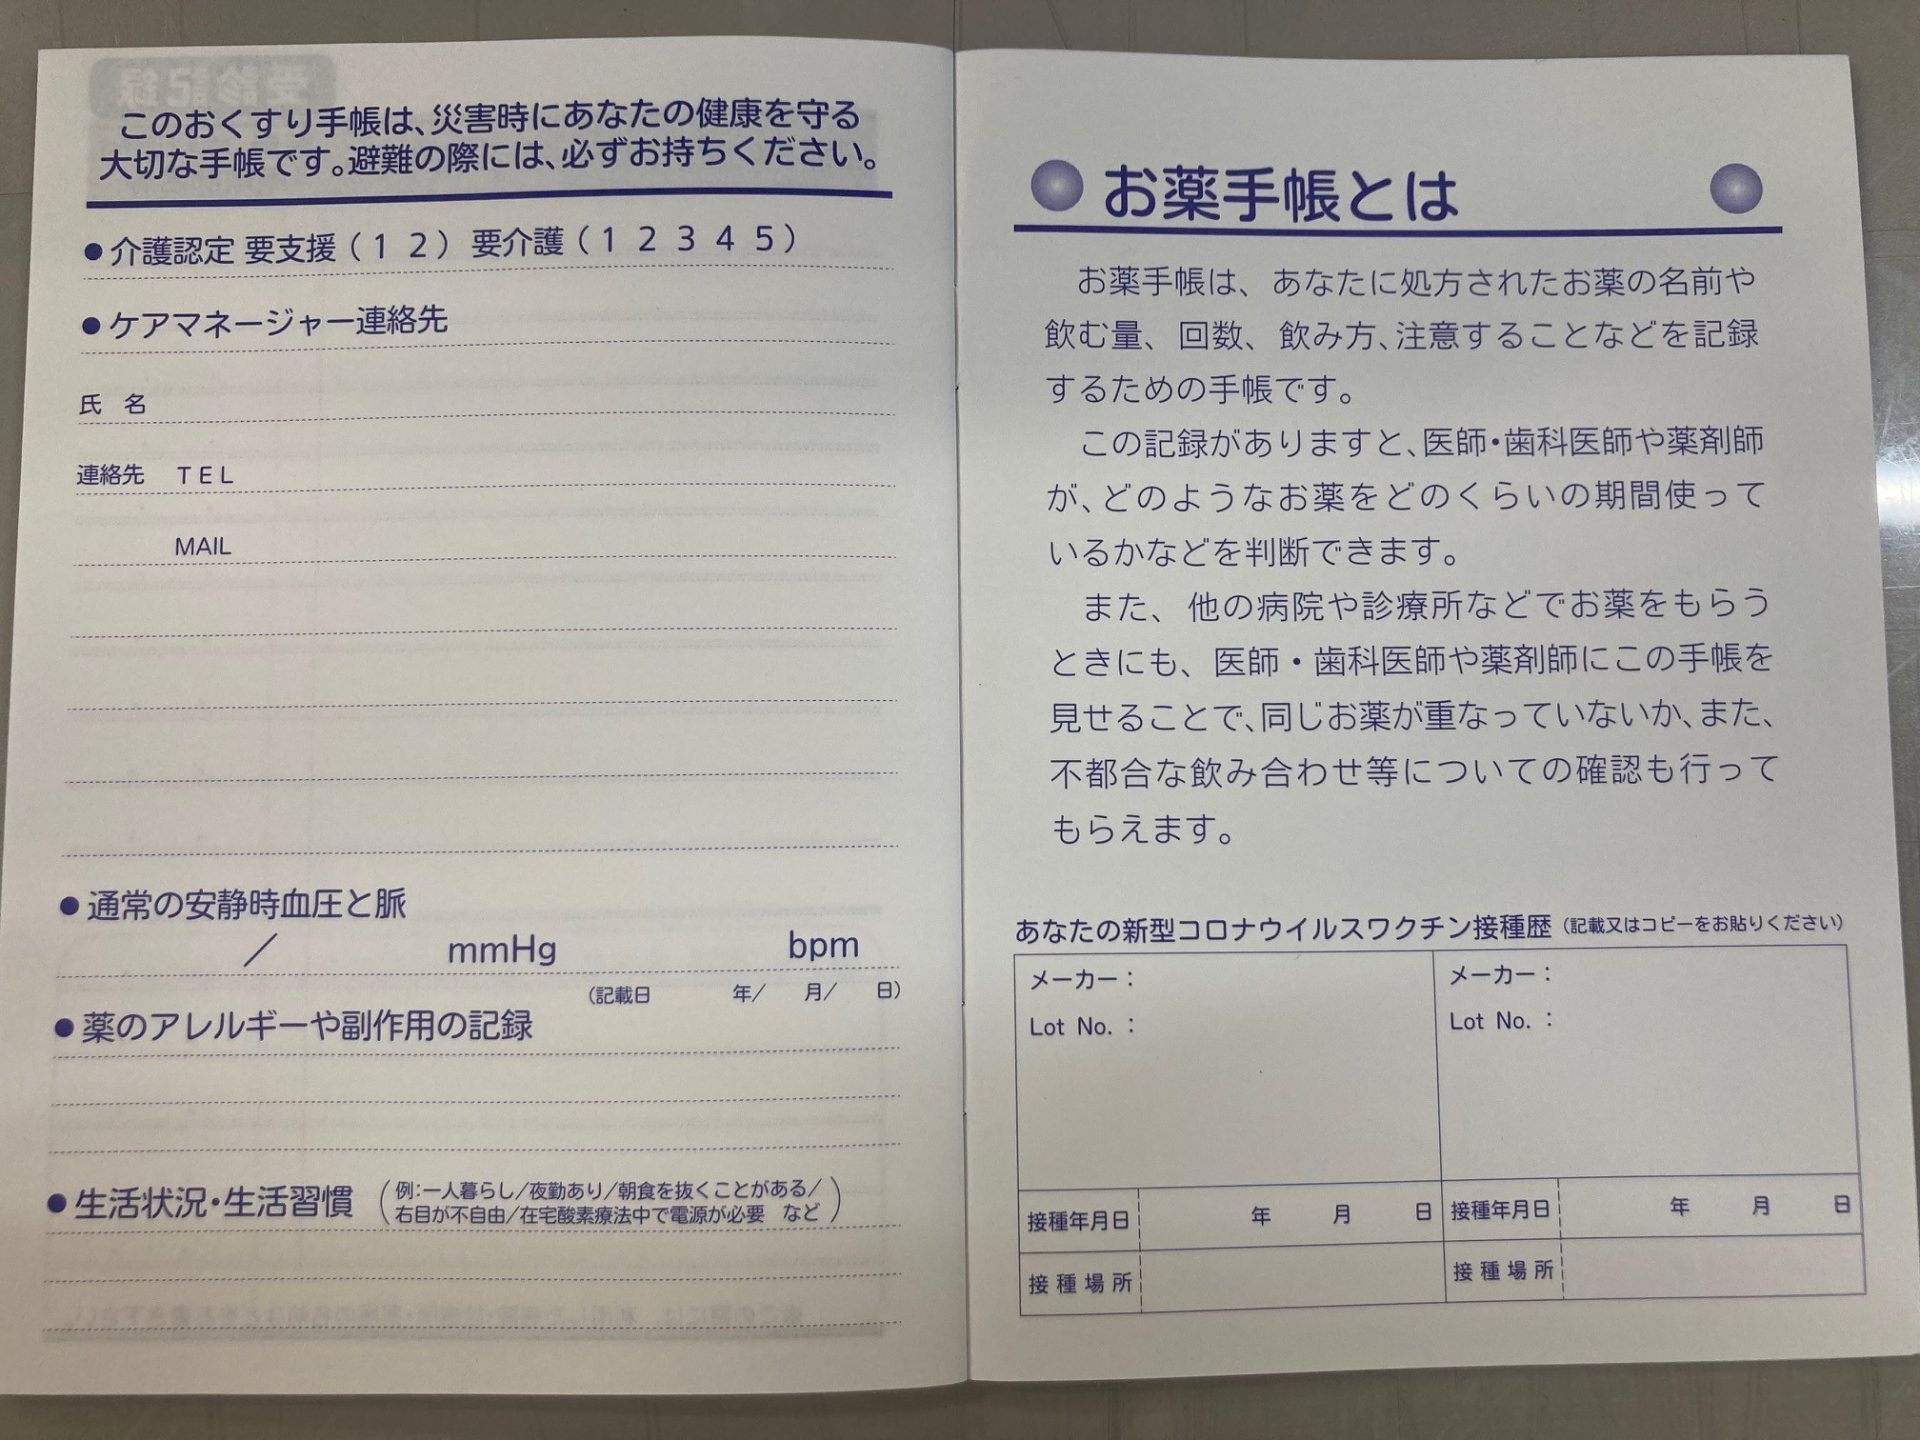 このおくすり手帳は、災害時にあなたの健康を守る
大切な手帳です。避難の際には、必ずお持ちください。
●介護認定 要支援（１ ２） 要介護（１ ２ ３ ４ ５）
●ケアマネージャー連絡先
氏 名
連絡先 TEL
MAIL
●通常の安静時血圧と脈
／ mmHg bpm
（記載日 年/ 月/ 日）
●薬のアレルギーや副作用の記録
●生活状況・生活習慣（例：一人暮らし/夜勤あり/朝食を抜くことがある/
右目が不自由/在宅酸素療法中で電源が必要 など）
お薬手帳とは
お薬手帳は、あなたに処方されたお薬の名前や
飲む量、回数、飲み方、注意することなどを記録
するための手帳です。
この記録がありますと、医師・歯科医師や薬剤師
が、どのようなお薬をどのくらいの期間使って
いるかなどを判断できます。
また、他の病院や診療所などでお薬をもらう
ときにも、医師・歯科医師や薬剤師にこの手帳を
見せることで、同じお薬が重なっていないか、また、
不都合な飲み合わせ等についての確認も行って
もらえます。
あなたの新型コロナウイルスワクチン接種歴（記載又はコピーをお貼りください）
メーカー： メーカー：
Lot No.： Lot No.：
接種年月日 年 月 日 接種年月日 年 月 日
接種場所 接種場所